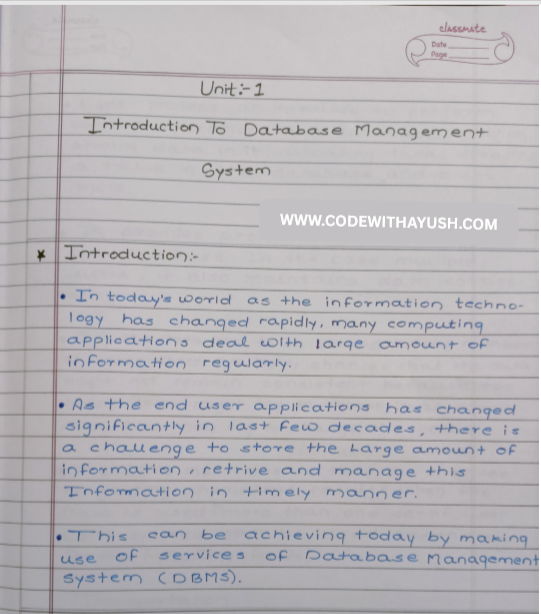 classmate
Date
Page
Unit:-1
Introduction To Database Management
System
WWW.CODEWITHAYUSH.COM
* Introduction:-
• In today's world as the information techno-
logy has changed rapidly, many computing
applications deal with large amount of
information regularly.
• As the end user applications has changed
significantly in last few decades, there is
a challenge to store the Large amount of
information, retrive and manage this
Information in timely manner.
• This can be achieving today by making
use of services of Database Management
System (DBMS).